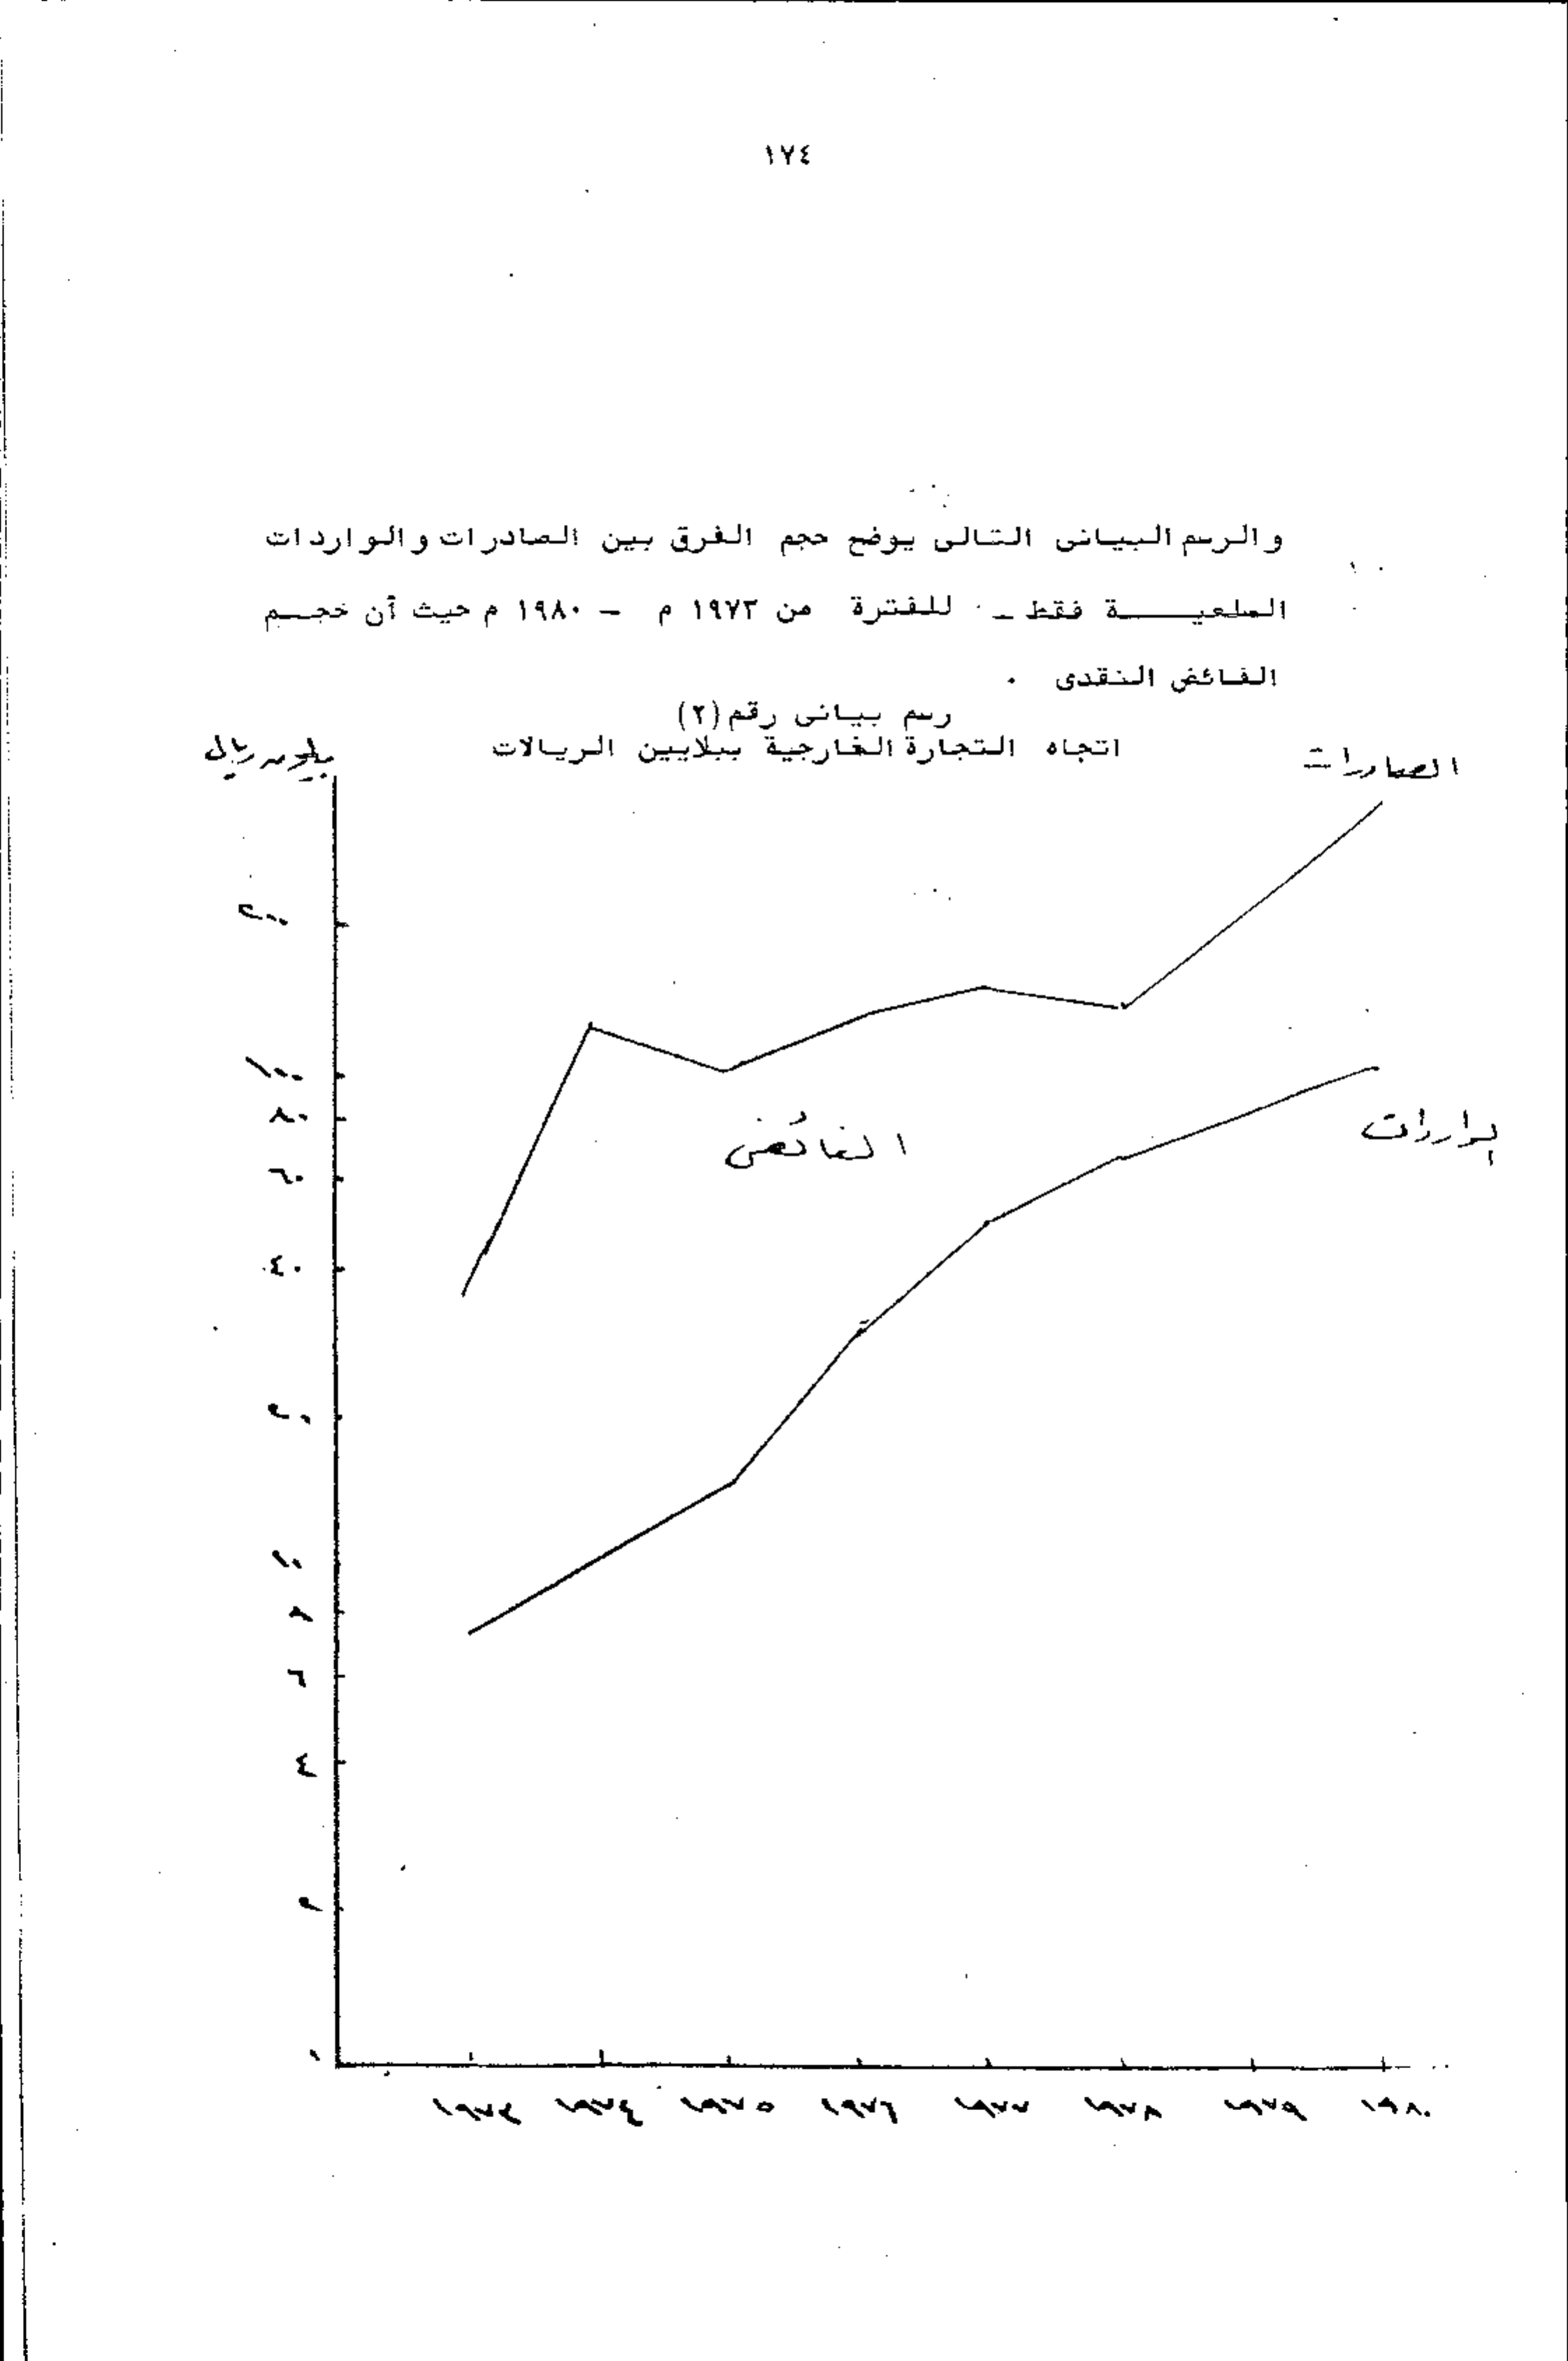 ١٧٤
والرسم البيانى التالى يوضح حجم الفرق بين الصادرات والواردات
السلعيــــة فقط ـ للفترة من ١٩٧٣ م - ١٩٨٠ م حيث أن حجــم
الفائض النقدى .
رسم بيانى رقم (٢)
اتجاه التجارة الخارجية ببلايين الريالات
بليون ريال
الصادرات
٢٠٠
١٠٠
٨٠
٦٠
٤٠
٢٠
١٠
٨
٦
٤
٢
الفائض
الواردات
١٩٧٣ ١٩٧٤ ١٩٧٥ ١٩٧٦ ١٩٧٧ ١٩٧٨ ١٩٧٩ ١٩٨٠